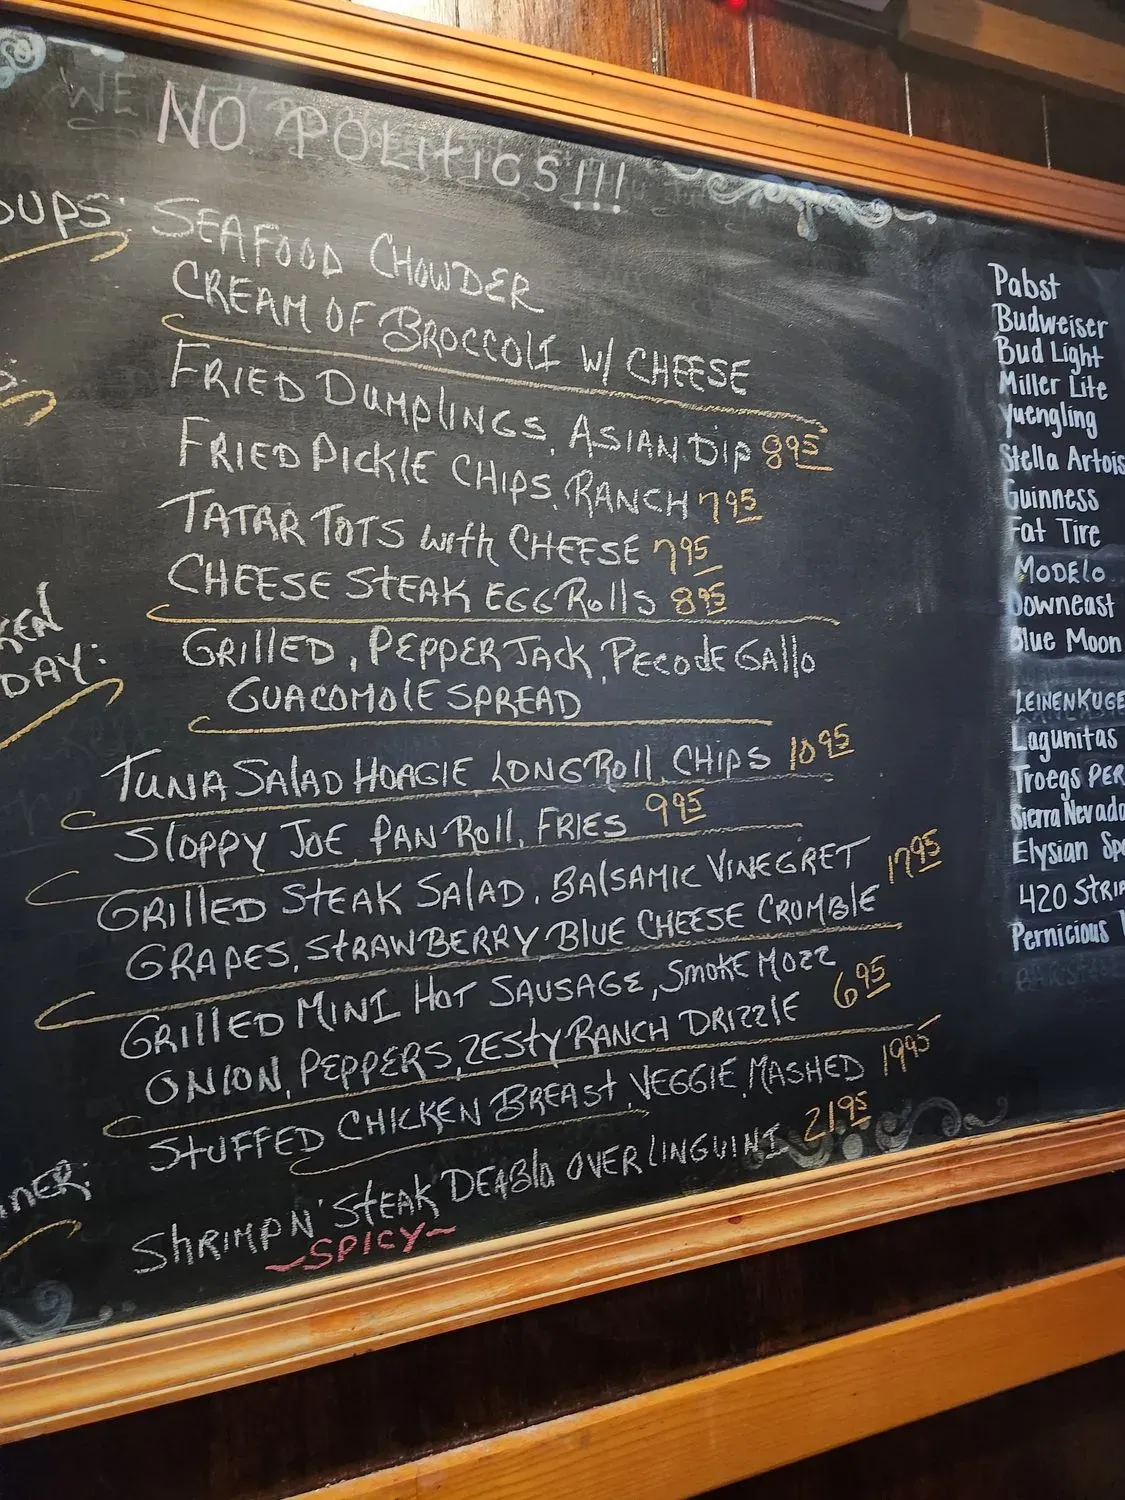 WE
NO POLITICS!!!
OUPS: SEAFOOD CHOWDER
CREAM OF BROCCOLI W/ CHEESE
FRIED DUMPLINGS, ASIAN DIP 8 95
FRIED PICKLE CHIPS, RANCH 7 95
TATAR TOTS with CHEESE 7 95
CHEESE STEAK EGG ROLLS 8 95
KEN
DAY:
GRILLED, PEPPER JACK, PECO dE GALLO
GUACOMOLE SPREAD
TUNA SALAD HOAGIE LONG ROLL, CHIPS 10 95
SLOPPY JOE, PAN ROLL, FRIES 9 95
GRILLED STEAK SALAD, BALSAMIC VINEGRET 17 95
GRAPES, STRAWBERRY, BLUE CHEESE CRUMBLE
GRILLED MINI HOT SAUSAGE, SMOKE MOZZ
ONION, PEPPERS, ZESTY RANCH DRIZZLE 6 95
STUFFED CHICKEN BREAST, VEGGIE, MASHED 19 95
NNER:
SHRIMP N' STEAK DEABLO OVER LINGUINI 21.95
~SPICY~
Pabst
Budweiser
Bud Light
Miller Lite
yuengling
Stella Artois
Guinness
Fat Tire
MODELO
Downeast
Blue Moon
LEINENKUGE
Lagunitas
Troegs PER
Sierra Nevada
Elysian Spa
420 STRI
Pernicious